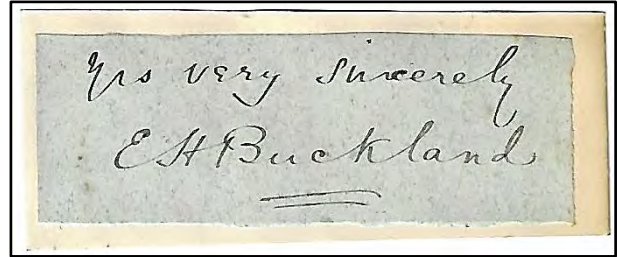 Yrs very sincerely
E H Buckland